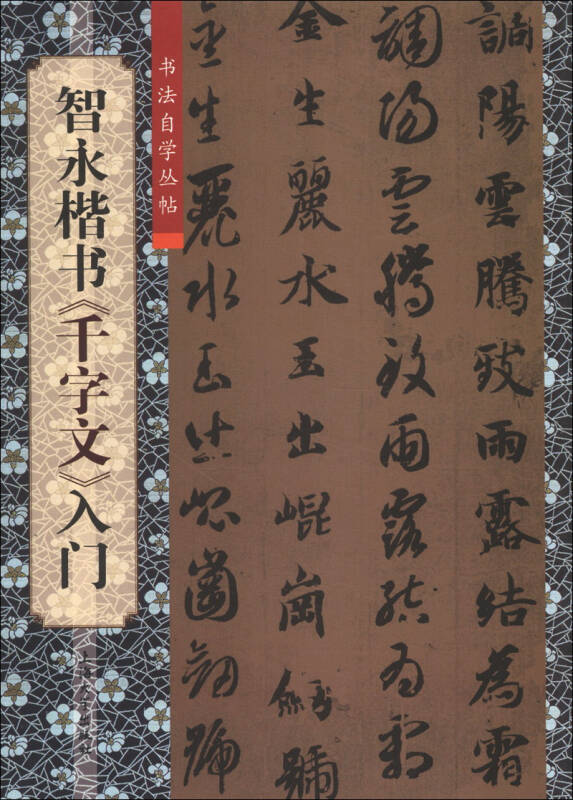 智永楷书《千字文》入门
书法自学丛帖
調陽雲騰致雨露結為霜
調陽雲騰致雨露結為霜
金生麗水玉出崐崗劍號
金生麗水玉出崐崗劍號